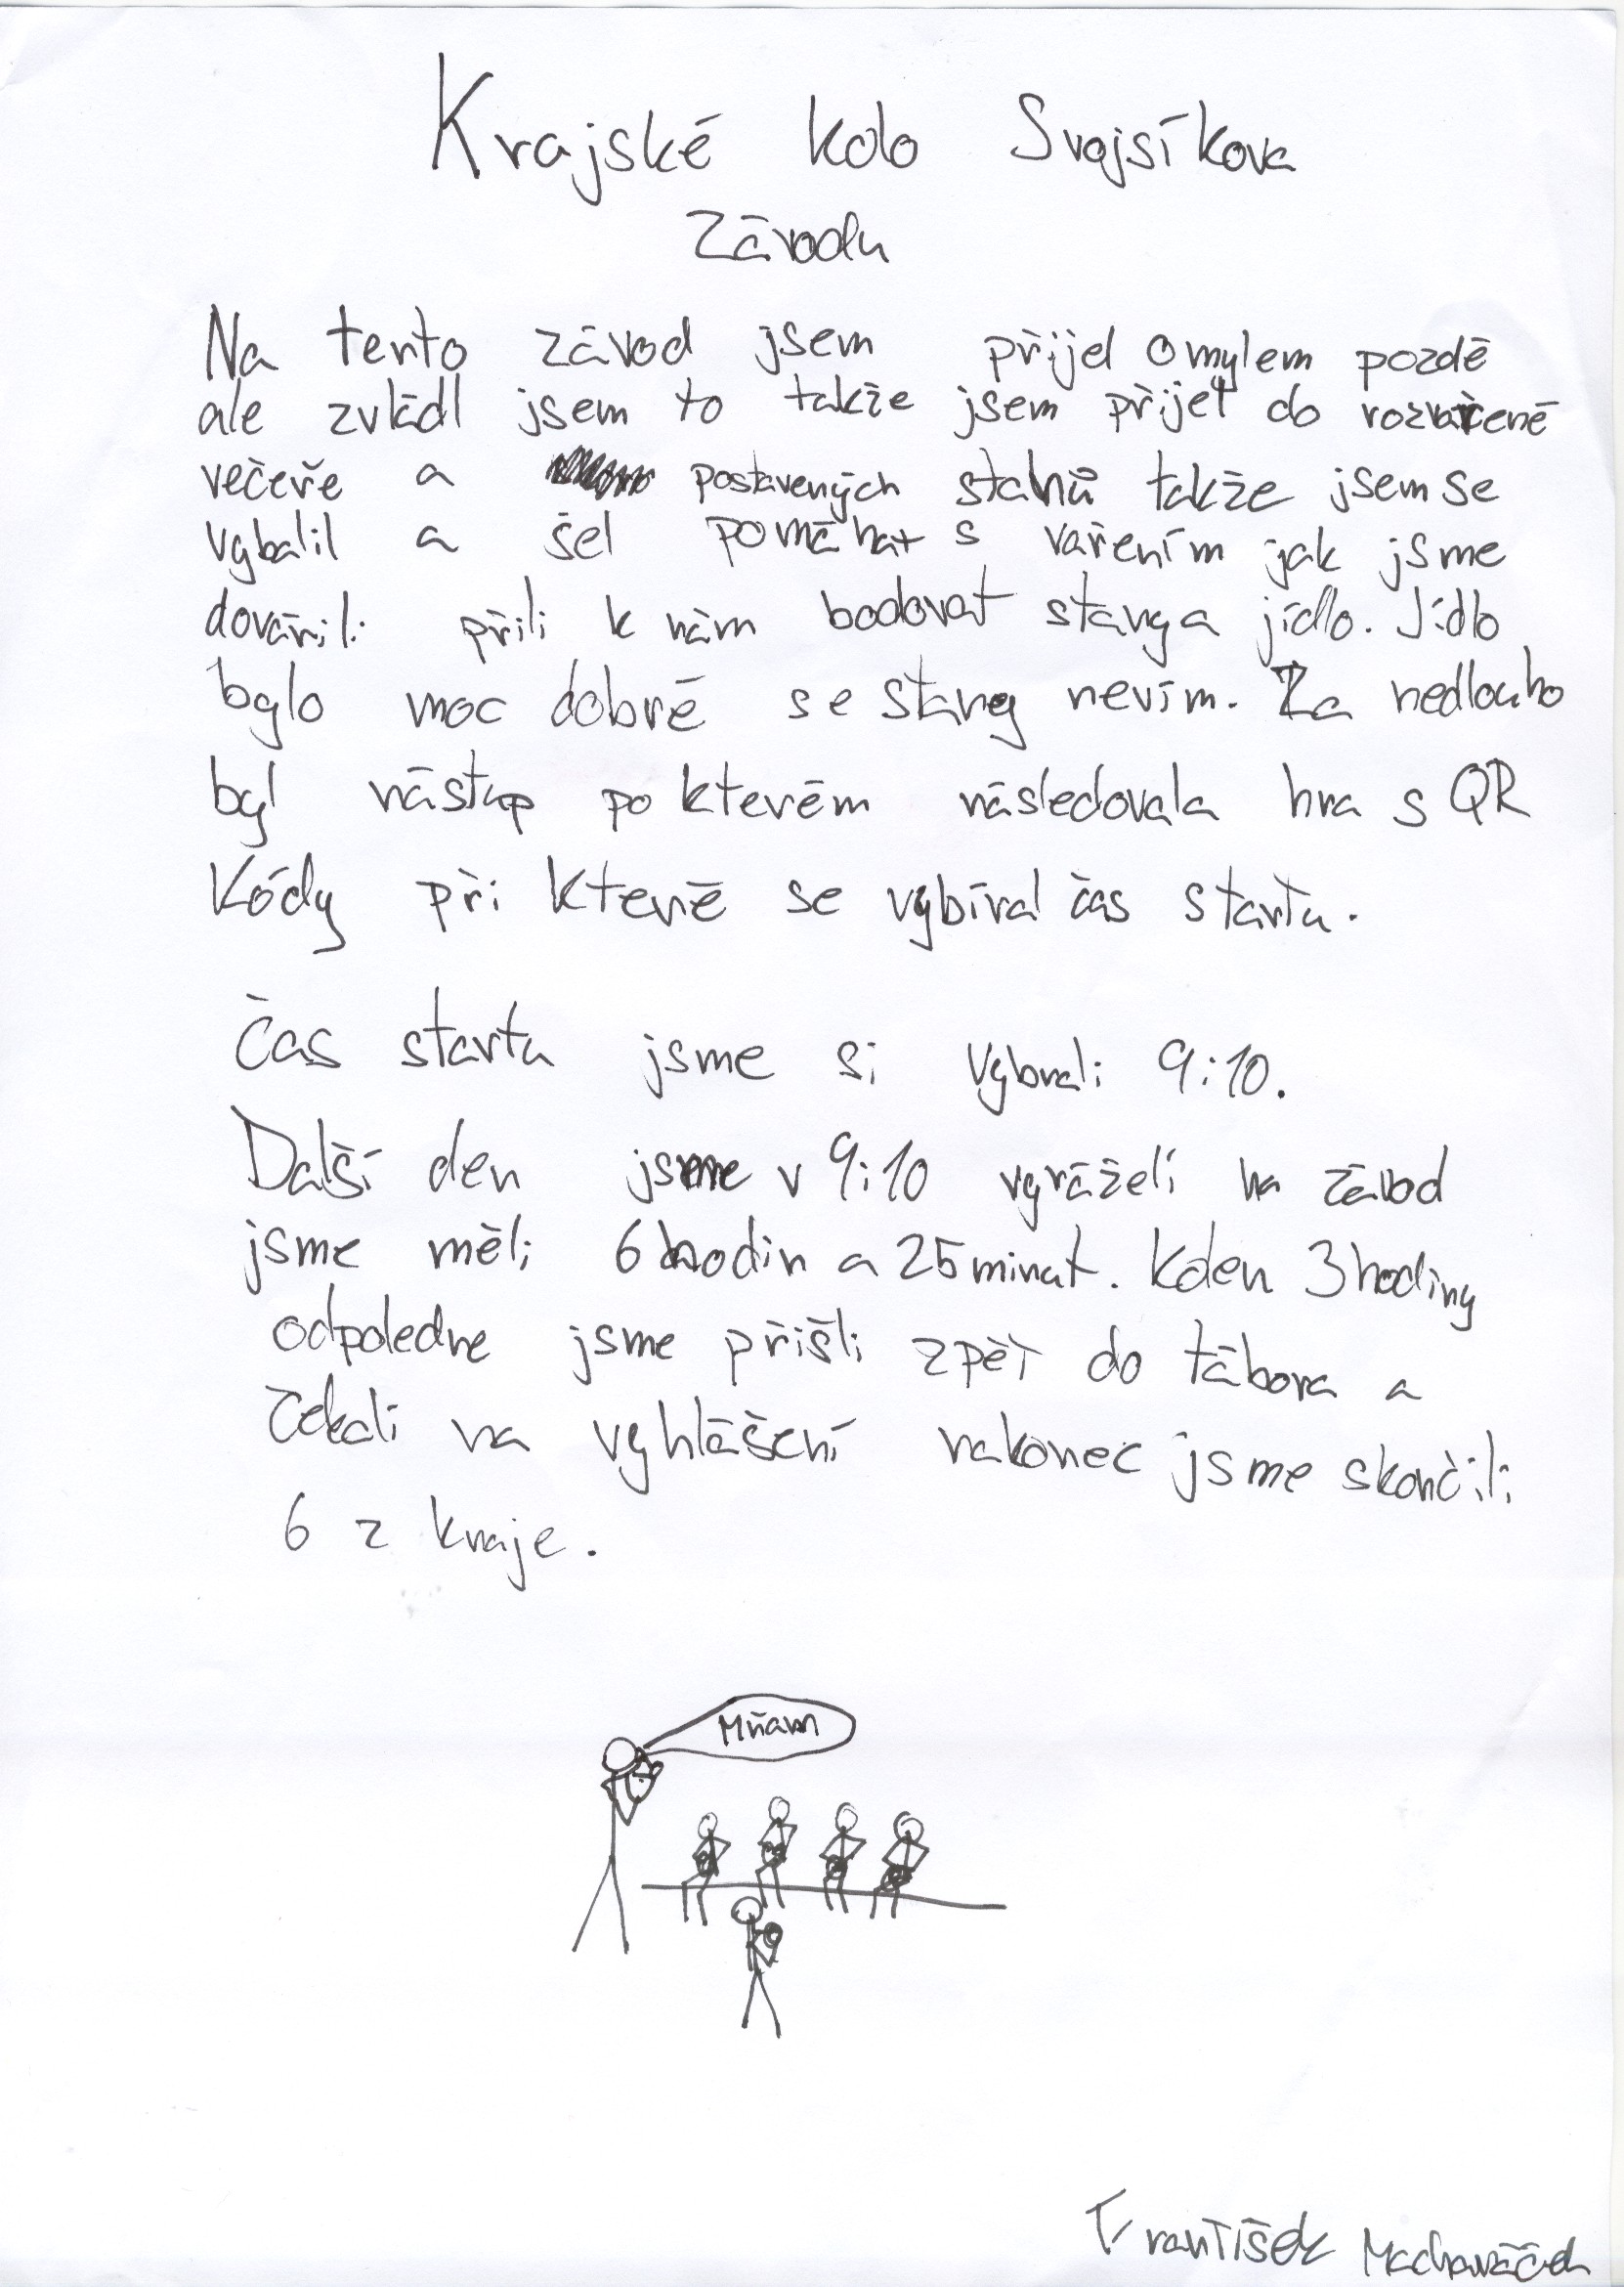 Krajské kolo Svojsíkova
Závodu
Na tento závod jsem přijel omylem pozdě
ale zvládl jsem to takže jsem přijel do rozvařené
večeře a postavených stanů takže jsem se
vybalil a šel pomáhat s vařením jak jsme
dovářili přili k nám bodovat stany a jídlo. Jídlo
bylo moc dobré se stany nevím. Za nedlouho
byl nástup po kterém následovala hra s QR
Kódy při které se vybíral čas startu.
Čas startu jsme si vybrali 9:10.
Další den jsme v 9:10 vyráželi na závod
jsme měli 6 hodin a 25 minut. Kden 3 hodiny
odpoledne jsme přišli zpět do tábora a
čekali na vyhlášení nakonec jsme skončili
6 z kraje.
Mňam
František